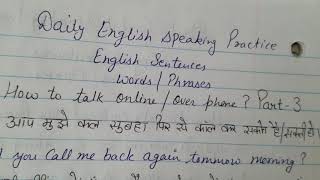 Daily English Speaking Practice
English Sentences
Words/Phrases
How to talk online/over phone? Part-3
आप मुझे कल सुबहा फिर से कॉल कर सकते है/सकती है।
you Call me back again tommow morning?